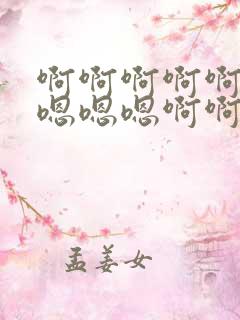 啊啊啊啊啊
嗯嗯嗯啊啊
孟姜女